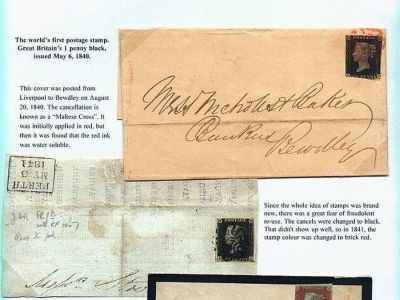 The world's first postage stamp.
Great Britain's 1 penny black,
issued May 6, 1840.
This cover was posted from
Liverpool to Bewdley on August
20, 1840. The cancellation is
known as a "Maltese Cross". It
was initially applied in red, but
then it was found that the red ink
was water soluble.
Bankers
Bewdley
PERTH
MY 5
1841
Since the whole idea of stamps was brand
new, there was a great fear of fraudulent
re-use. The cancels were changed to black.
That didn't show up well, so in 1841, the
stamp colour was changed to brick red.